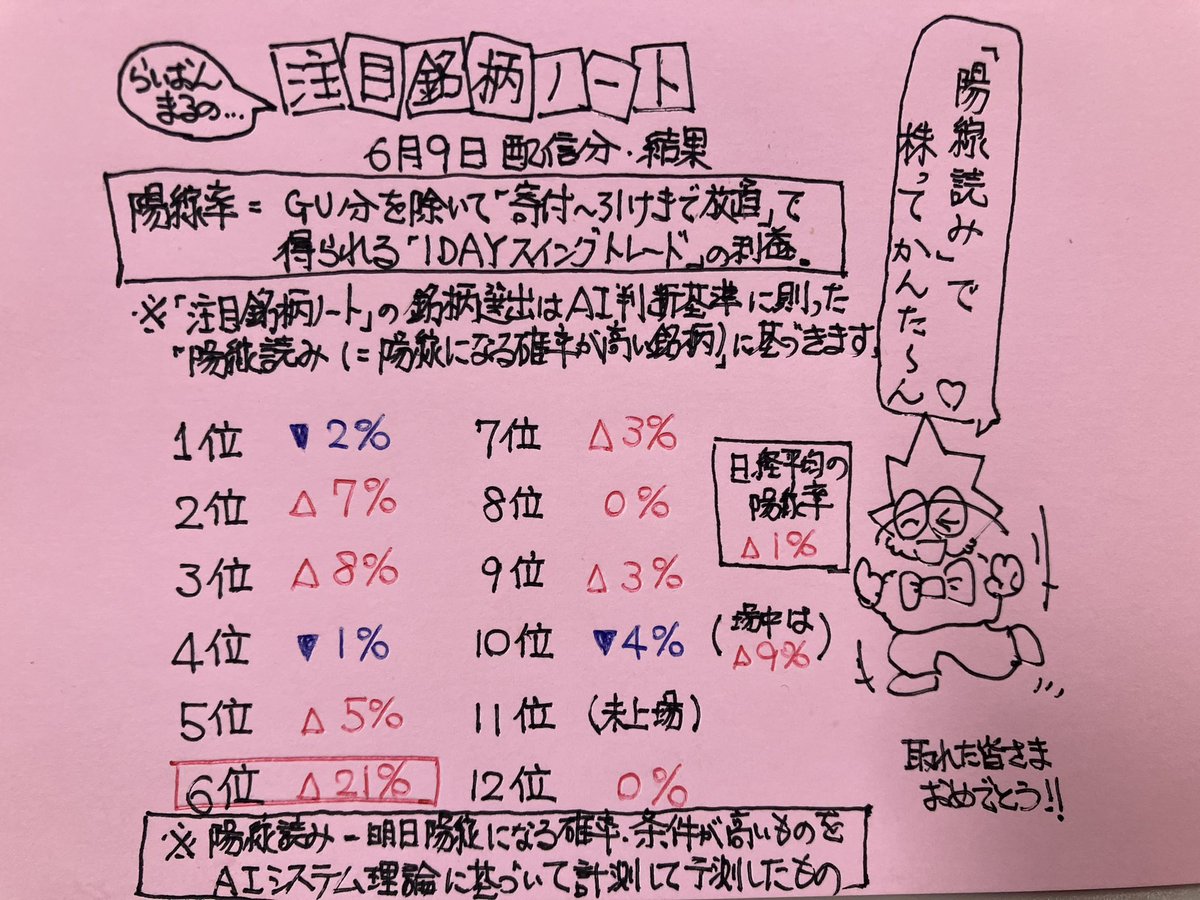 らいおん
まるの…
注目銘柄ノート
6月9日 配信分・結果
「陽線読み」で
株ってかんたーん♡
陽線率 = GU分を除いて「寄付〜引けまで放置」で
得られる「1DAYスイングトレード」の利益。
※「注目銘柄ノート」の銘柄選出はAI判断基準に則った
「陽線読み(=陽線になる確率が高い銘柄)」に基づきます。
1位 ▼2%
2位 △7%
3位 △8%
4位 ▼1%
5位 △5%
6位 △21%
7位 △3%
8位 0%
9位 △3%
10位 ▼4% (場中は
△9%)
11位 (未上場)
12位 0%
日経平均の
陽線率
△1%
取れた皆さま
おめでとう!!
※ 陽線読み-明日陽線になる確率・条件が高いものを
AIシステム理論に基づいて計測して予測したもの